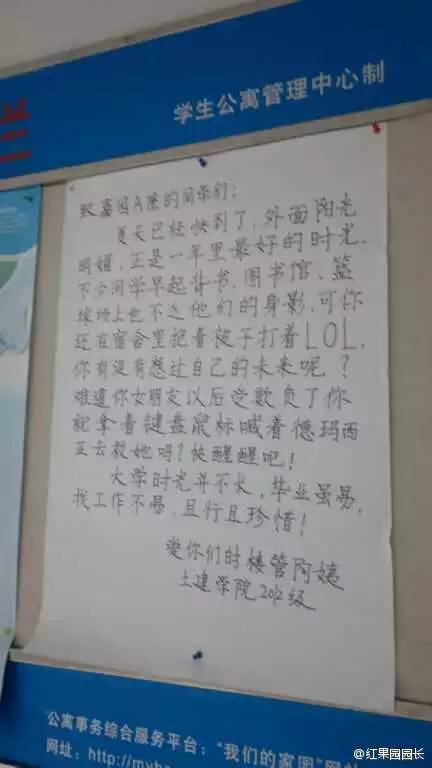 学生公寓管理中心制
致嘉园A座的同学们：
夏天已经快到了，外面阳光
明媚，正是一年里最好的时光，
不少同学早起背书，图书馆、篮
球场上也不乏他们的身影，可你
还在宿舍里抱着被子打着LOL，
你有没有想过自己的未来呢？
难道你女朋友以后受欺负了你
就拿着键盘鼠标喊着德玛西
亚去救她吗？快醒醒吧！
大学时光并不长，毕业虽易，
找工作不易，且行且珍惜！
爱你们的楼管阿姨
土建学院2012级
公寓事务综合服务平台：“我们的家园”网
网址：http://myh
@红果园园长